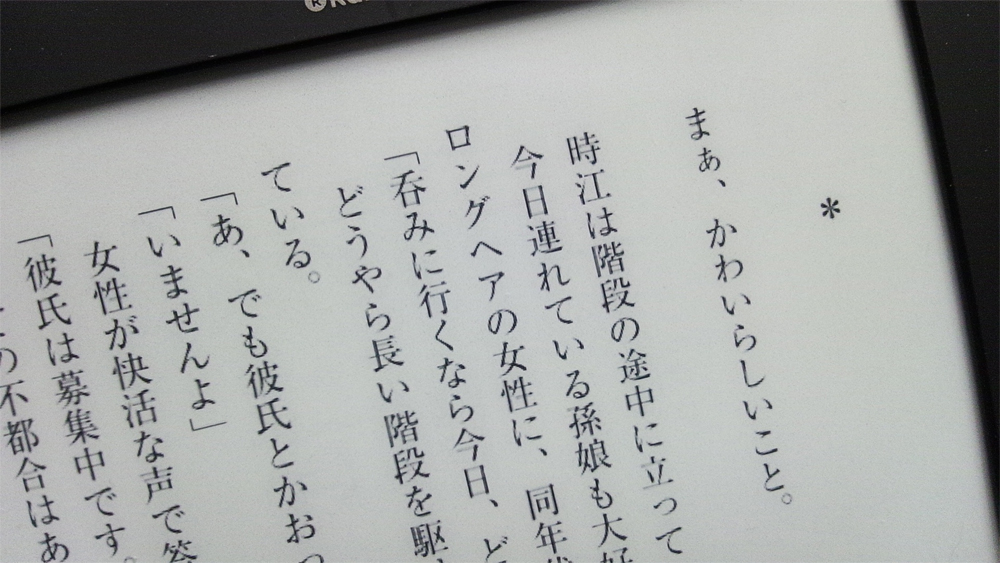 *
まぁ、かわいらしいこと。
時江は階段の途中に立って
今日連れている孫娘も大好
ロングヘアの女性に、同年代
「呑みに行くなら今日、ど
どうやら長い階段を駆
ている。
「あ、でも彼氏とかおっ
「いませんよ」
女性が快活な声で答
「彼氏は募集中です。
の不都合はあ